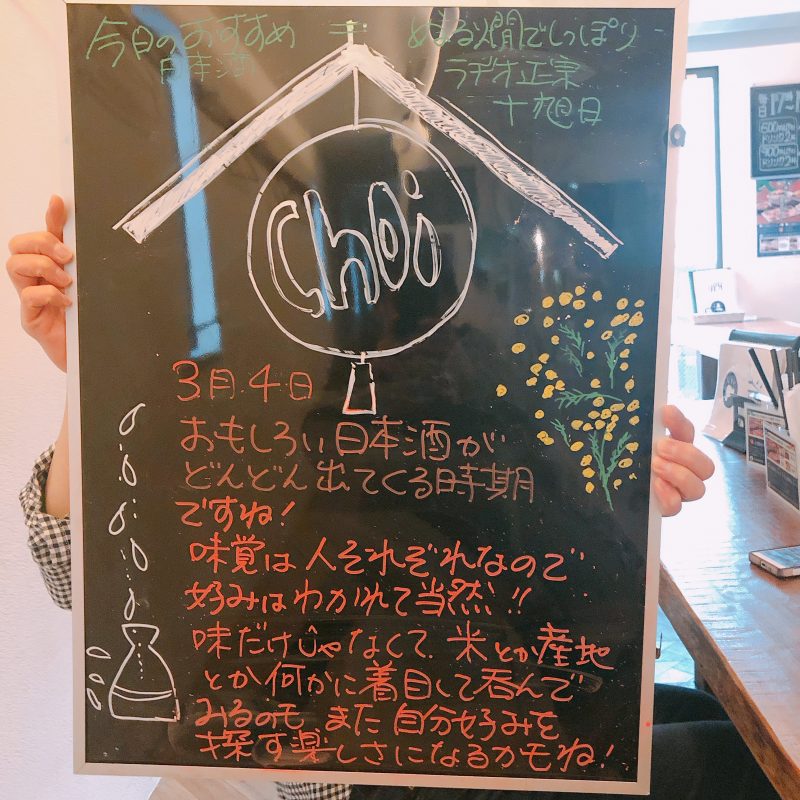 今日のおすすめ
日本酒
ぬる燗でしっぽり
ラヂオ正宗
十旭日
choi
3月4日
おもしろい日本酒が
どんどん出てくる時期
ですね!
味覚は人それぞれなので
好みはわかれて当然!!
味だけじゃなくて、米とか産地
とか何かに着目して呑んで
みるのも また自分好みを
探す楽しさになるかもね!